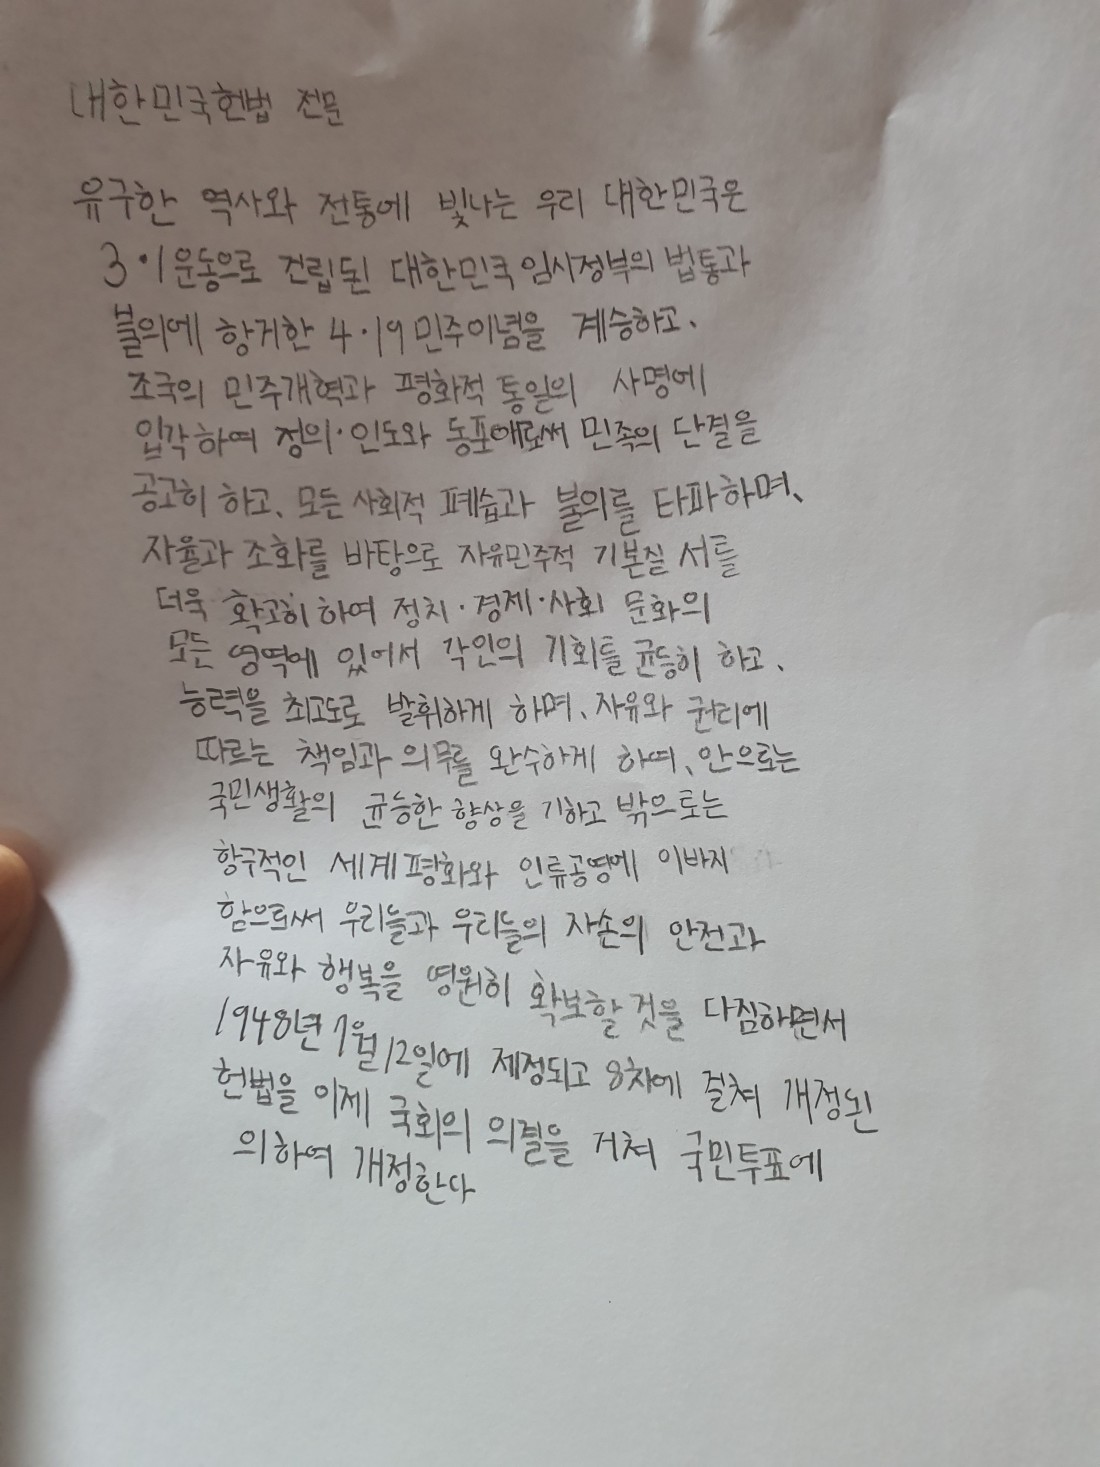 대한민국헌법 전문
유구한 역사와 전통에 빛나는 우리 대한민국은
3·1운동으로 건립된 대한민국 임시정부의 법통과
불의에 항거한 4·19 민주이념을 계승하고,
조국의 민주개혁과 평화적 통일의 사명에
입각하여 정의·인도와 동포애로써 민족의 단결을
공고히 하고, 모든 사회적 폐습과 불의를 타파하며,
자율과 조화를 바탕으로 자유민주적 기본질서를
더욱 확고히 하여 정치·경제·사회 문화의
모든 영역에 있어서 각인의 기회를 균등히 하고,
능력을 최고도로 발휘하게 하며, 자유와 권리에
따르는 책임과 의무를 완수하게 하여, 안으로는
국민생활의 균등한 향상을 기하고 밖으로는
항구적인 세계평화와 인류공영에 이바지
함으로써 우리들과 우리들의 자손의 안전과
자유와 행복을 영원히 확보할 것을 다짐하면서
1948년 7월 12일에 제정되고 8차에 걸쳐 개정된
헌법을 이제 국회의 의결을 거쳐 국민투표에
의하여 개정한다